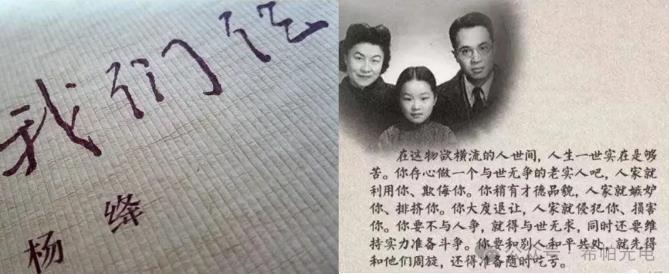 我们仨
杨绛
在这物欲横流的人世间，人生一世实在是够
苦。你存心做一个与世无争的老实人吧，人家就
利用你、欺侮你。你稍有才德品貌，人家就嫉妒
你、排挤你。你大度退让，人家就侵犯你、损害
你。你要不与人争，就得与世无求，同时还要维
持实力准备斗争。你要和别人和平共处，就先得
和他们周旋，还得准备随时吃亏。
希帕光电